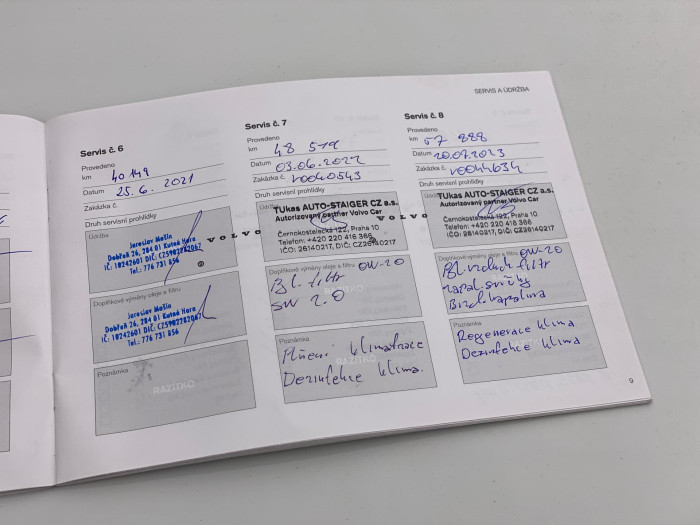 SERVIS A ÚDRŽBA
Servis č. 6
Provedeno
km 40 149
Datum 25. 6. 2021
Zakázka č.
Druh servisní prohlídky
Údržba
Jaroslav Mašín
Dobřeň 26, 284 01 Kutná Hora
IČ: 10242601 DIČ: CZ5902282067
Tel.: 776 731 856
VOLVO
Doplňkové výměny oleje a filtru
Jaroslav Mašín
Dobřeň 26, 284 01 Kutná Hora
IČ: 10242601 DIČ: CZ5902282067
Tel.: 776 731 856
Poznámka
RAZÍTKO
Servis č. 7
Provedeno
km 48 519
Datum 03.06.2022
Zakázka č. V0040543
Druh servisní prohlídky
TUkas AUTO-STAIGER CZ a.s.
Autorizovaný partner Volvo Car
Černokostelecká 122, Praha 10
Telefon: +420 220 416 366
IČO: 26140217, DIČ: CZ26140217
VOLVO
Doplňkové výměny oleje a filtru
0W-20
SW 2.0
Poznámka
Plnění klimatizace
Dezinfekce klima.
RAZÍTKO
Servis č. 8
Provedeno
km 57 888
Datum 20.07.2023
Zakázka č. V0044634
Druh servisní prohlídky
TUkas AUTO-STAIGER CZ a.s.
Autorizovaný partner Volvo Car
Černokostelecká 122, Praha 10
Telefon: +420 220 416 366
IČO: 26140217, DIČ: CZ26140217
Doplňkové výměny oleje a filtru
0W-20
vzduch. filtr
zapal. svíčky
Brzd. kapalina
Poznámka
Regenerace klima
Dezinfekce klima
RAZÍTKO
9